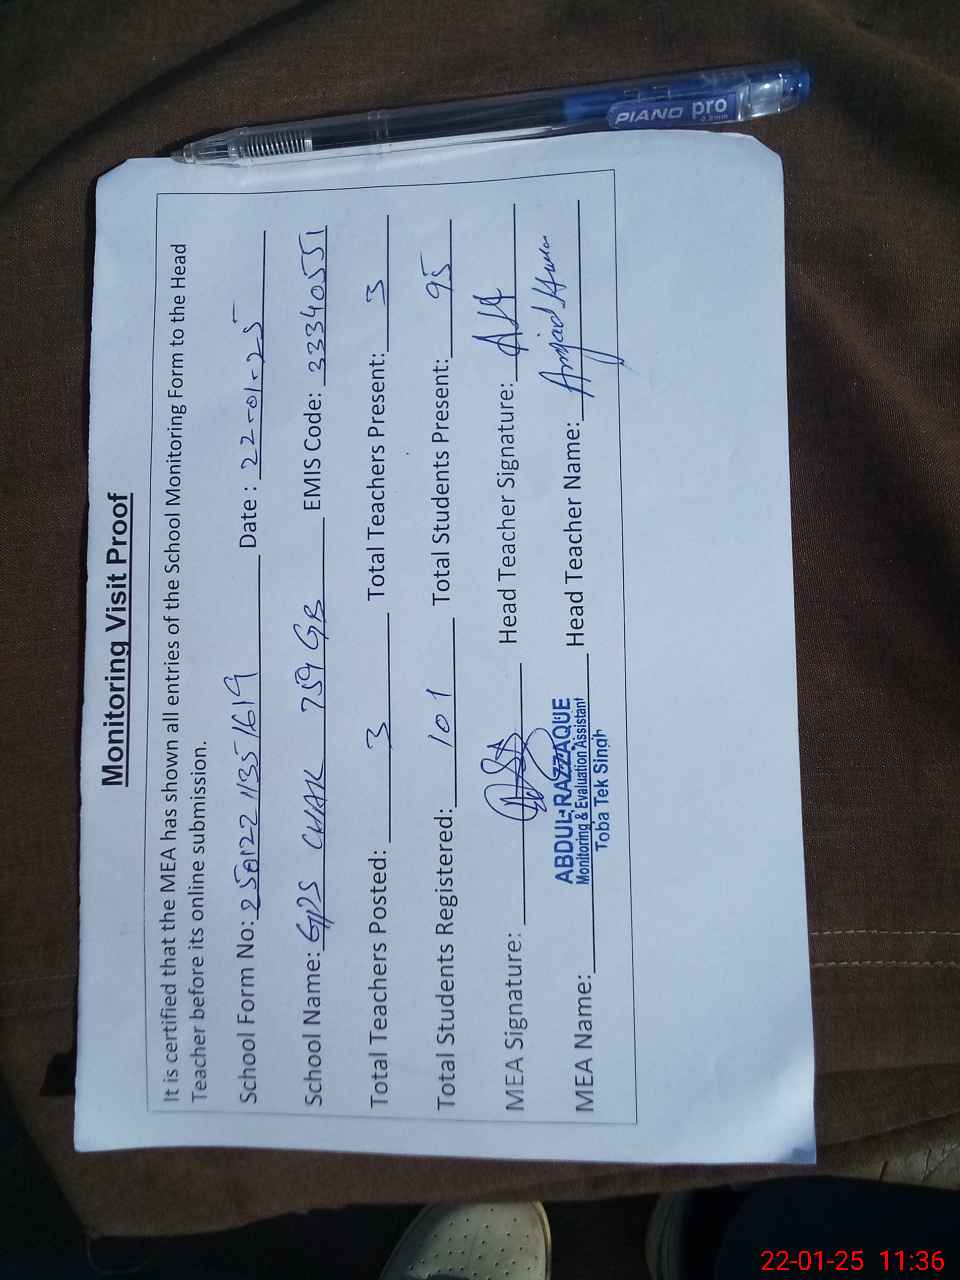 Monitoring Visit Proof
It is certified that the MEA has shown all entries of the School Monitoring Form to the Head
Teacher before its online submission.
School Form No: 250122 1135 1619 Date : 22-01-25
School Name: GPS CHAK 759 GB EMIS Code: 33340551
Total Teachers Posted: 3 Total Teachers Present: 3
Total Students Registered: 101 Total Students Present: 95
MEA Signature: Head Teacher Signature:
MEA Name: ABDUL RAZZAQUE Head Teacher Name: Amjad
Monitoring & Evaluation Assistant
Toba Tek Singh
PIANO pro
0.8mm
22-01-25 11:36